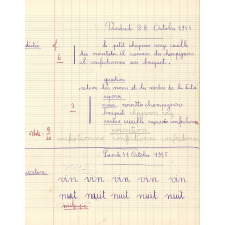 Vendredi 28 Octobre 1955
dictée
le petit chaperon rouge cueille
des noisettes et ramasse des champignons
et confectionne un bouquet.
5
question
relève les noms et les verbes de la dictée
réponse
3
noms noisettes champignons
bouquet chaperon
verbes cueille ramasse confectionne
confectionne confectionne
Lundi 31 Octobre 1955
écriture
vin vin vin vin vin
nuit nuit nuit nuit nuit